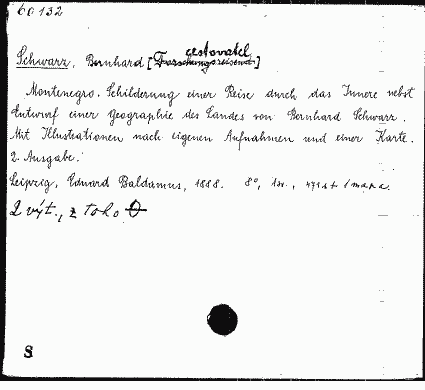 60132
cestovatel
Schwarz, Bernhard [Forschungsreisend.]
Montenegro. Schilderung einer Reise durch das Innere nebst
Entwurf einer Geographie des Landes von Bernhard Schwarz.
Mit Illustrationen nach eigenen Aufnahmen und einer Karte.
2. Ausgabe.
Leipzig, Eduard Baldamus, 1888. 8°, 1 sv., 471 s + 1 mapa.
2 výt., z toho D
S